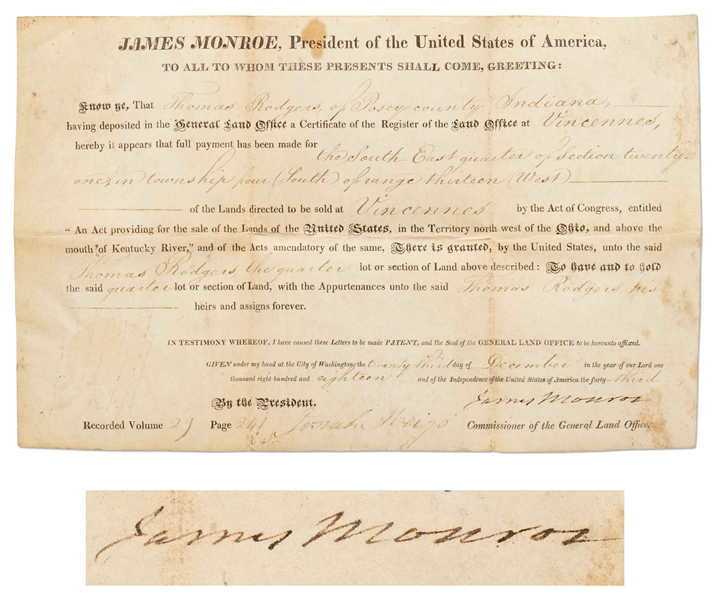 JAMES MONROE, President of the United States of America,
TO ALL TO WHOM THESE PRESENTS SHALL COME, GREETING:
Know ye, That Thomas Rodgers, of Posey county Indiana,
having deposited in the General Land Office a Certificate of the Register of the Land Office at Vincennes,
hereby it appears that full payment has been made for
the South East quarter of section twenty
one, in township four (South) of range thirteen (West)
of the Lands directed to be sold at Vincennes by the Act of Congress, entitled
"An Act providing for the sale of the Lands of the United States, in the Territory north west of the Ohio, and above the
mouth of Kentucky River," and of the Acts amendatory of the same, There is granted, by the United States, unto the said
Thomas Rodgers the quarter lot or section of Land above described: To have and to hold
the said quarter lot or section of Land, with the Appurtenances unto the said Thomas Rodgers his
heirs and assigns forever.
IN TESTIMONY WHEREOF, I have caused these Letters to be made PATENT, and the Seal of the GENERAL LAND OFFICE to be hereunto affixed.
GIVEN under my hand at the City of Washington, the twenty third day of December in the year of our Lord one
thousand eight hundred and eighteen and of the Independence of the United States of America the forty-third
By the President. James Monroe
Recorded Volume 29 Page 241 Josiah Meigs Commissioner of the General Land Office.
James Monroe